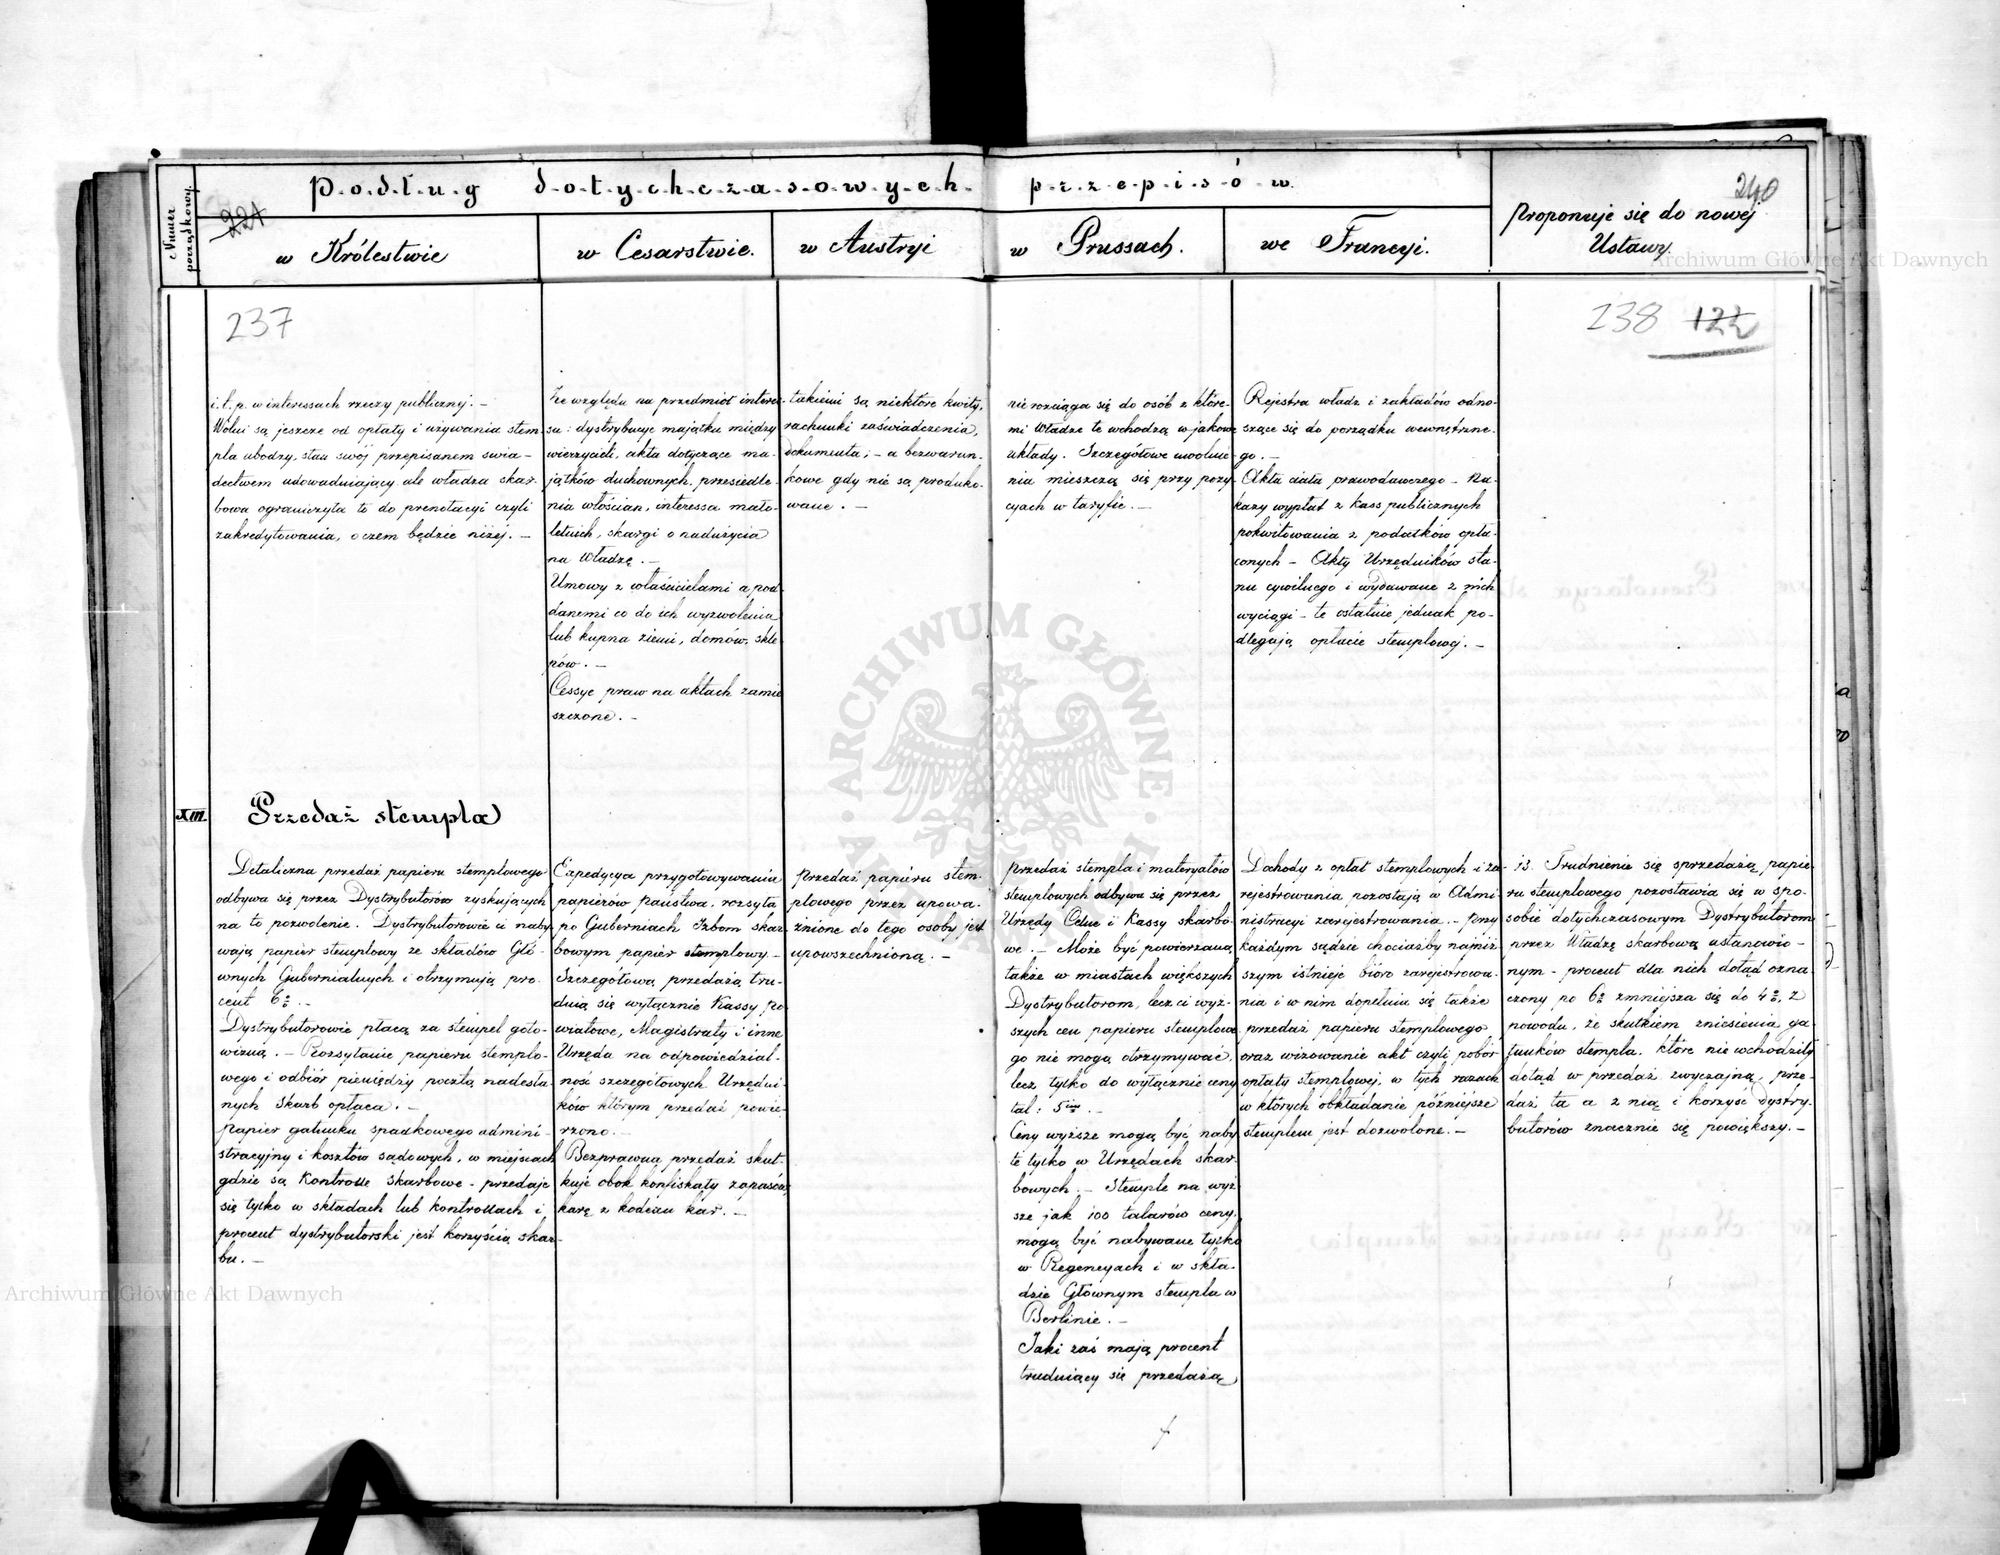 Numer porządkowy.
Podług dotychczasowych przepisów.
221
240
w Królestwie
w Cesarstwie.
w Austryi
w Prussach.
we Francyi.
Proponuje się do nowéj
Ustawy.
237
238 122
i.t.p. w interessach rzeczy publicznej. –
Wolni są jeszcze od opłaty i używania stem-
pla ubodzy, stan swój przepisanem swia-
dectwem udowadniający ale władza skar-
bowa ograniczyła to do prenotacyi czyli
zakredytowania, o czem będzie niżéj. –
Ze względu na przedmiot interes-
su: dystrybucye majątku między
wierzycieli, akta dotyczące ma-
jątków duchownych, przesiedle-
nia włościan, interessa mało-
letnich, skargi o nadużycia
na Władzę. –
Umowy z właścicielami a pod-
danemi co do ich wyzwolenia
lub kupna ziemi, domów, skle-
pów. –
Cessye praw na aktach zamie
szczone. –
takiemi są niektóre kwity,
rachunki zaświadczenia,
dokumenta; – a bezwarun-
kowe gdy nie są produko-
wane. –
nie rozciąga się do osób z które-
mi Władze te wchodzą w jakowe
układy. Szczegółowe uwolnie-
nia mieszczą się przy pozy-
cyach w taryfie. –
Rejestra władz i zakładów odno-
szące się do porządku wewnętrzne-
go. –
Akta ciała prawodawczego – Na-
kazy wypłat z kass publicznych
pokwitowania z podatków opła-
conych – Akty Urzędników sta-
nu cywilnego i wydawane z nich
wyciągi – te ostatnie jednak po-
dlegają opłacie stemplowej. –
XIII.
Przedaż stempla
Detaliczna przedaż papieru stemplowego
odbywa się przez Dystrybutorów zyskujących
na to pozwolenie. Dystrybutorowie ci naby
wają papier stemplowy ze składów Głó-
wnych Gubernialnych i otrzymują pro-
cent 6%. –
Dystrybutorowie płacą za stempel goto-
wizną. – Rozsyłanie papieru stemplo-
wego i odbiór pieniędzy pocztą nadesła-
nych Skarb opłaca. –
Papier gatunku spadkowego admini-
stracyjny i kosztów sądowych, w miejscach
gdzie są Kontrolle Skarbowe – przedaje
się tylko w składach lub kontrollach i
procent dystrybutorski jest korzyścią skar-
bu. –
Expedycya przygotowywania
papierów Państwa, rozsyła
po Guberniach Izbom skar
bowym papier stemplowy –
Szczegółową przedażą tru-
dnią się wyłącznie Kassy po
wiatowe, Magistraty i inne
Urzęda na odpowiedzial-
ność szczegółowych Urzędni-
ków którym przedaż powie-
rzono. –
Bezprawna przedaż skut-
kuje obok konfiskaty zapasów
karę z kodexu kar. –
Przedaż papieru stem-
plowego przez upowa-
żnione do tego osoby jest
upowszechnioną. –
Przedaż stempla i materyałów
stemplowych odbywa się przez
Urzędy Celne i Kassy skarbo-
we. – Może być powierzaną
także w miastach większych
Dystrybutorom, lecz ci wyż-
szych cen papieru stemplowe
go nie mogą otrzymywać,
lecz tylko do wyłącznie ceny
tal: 5ciu. –
Ceny wyższe mogą być naby
te tylko w Urzędach skar-
bowych. – Stemple na wyż
sze jak 100 talarów ceny,
mogą być nabywane tylko
w Regencyach i w skła-
dzie Głównym stempla w
Berlinie. –
Jaki zaś mają procent
trudniący się przedażą
Dochody z opłat stemplowych i za
rejestrowania pozostają w Admi
nistracyi zarejestrowania. – Przy
każdym sądzie chociażby najniż
szym istnieje biuro zarejestrowa-
nia i w nim dopełnia się także
przedaż papieru stemplowego
oraz wizowanie akt czyli pobór
opłaty stemplowej, w tych razach
w których obkładanie późniejsze
stemplem jest dozwolone. –
13. Trudnienie się sprzedażą papie-
ru stemplowego pozostawia się w spo-
sobie dotychczasowym Dystrybutorom
przez Władzę skarbową ustanowio-
nym – procent dla nich dotąd ozna-
czony po 6% zmniejsza się do 4%, z
powodu, że skutkiem zniesienia ga-
tunków stempla, które nie wchodziły
dotąd w przedaż zwyczajną, prze-
daż ta a z nią i korzyść dystry-
butorów znacznie się powiększy. –
ARCHIWUM GŁÓWNE AKT
Archiwum Główne Akt Dawnych
Archiwum Główne Akt Dawnych